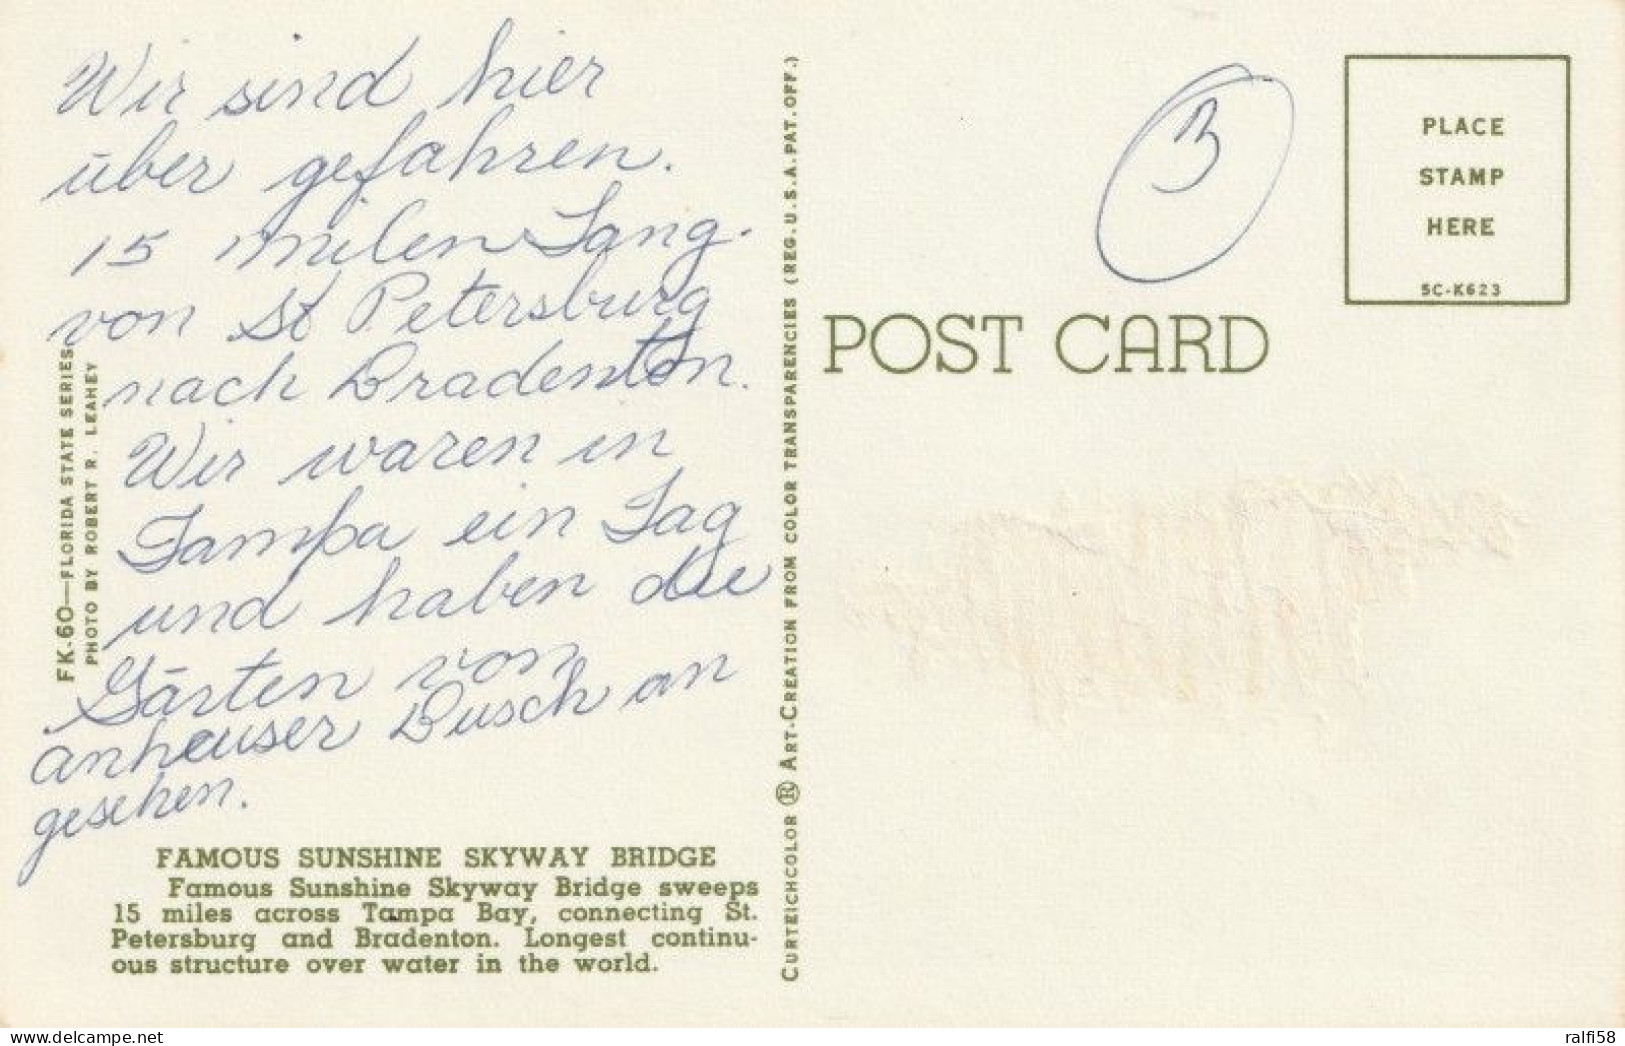 Wir sind hier
über gefahren.
15 milen Lang.
von St Petersburg
nach Bradenton.
Wir waren in
Tampa ein Tag
und haben die
Gärten von
anheuser Busch an
gesehen.
FAMOUS SUNSHINE SKYWAY BRIDGE
Famous Sunshine Skyway Bridge sweeps
15 miles across Tampa Bay, connecting St.
Petersburg and Bradenton. Longest continu-
ous structure over water in the world.
FK-60—FLORIDA STATE SERIES
PHOTO BY ROBERT R. LEAHEY
CURTEICHCOLOR ® ART-CREATION FROM COLOR TRANSPARENCIES (REG. U.S.A. PAT. OFF.)
3
POST CARD
PLACE
STAMP
HERE
5C-K623
www.delcampe.net
ralfi58